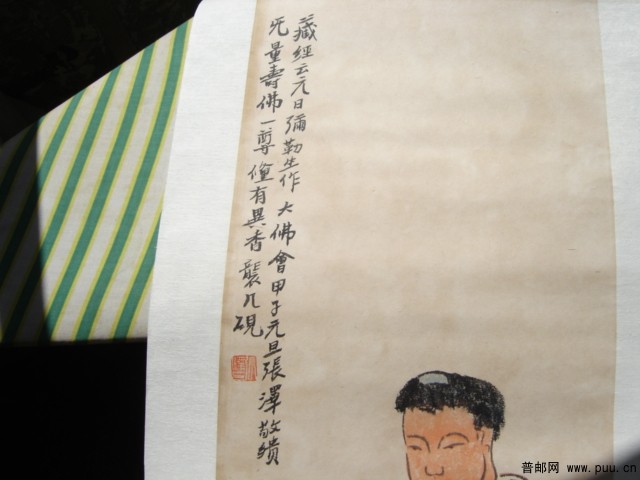 藏經云元日彌勒生作大佛會甲子元旦張澤敬繢
无量壽佛一尊僮有異香襲几硯
普邮网 www.puu.cn